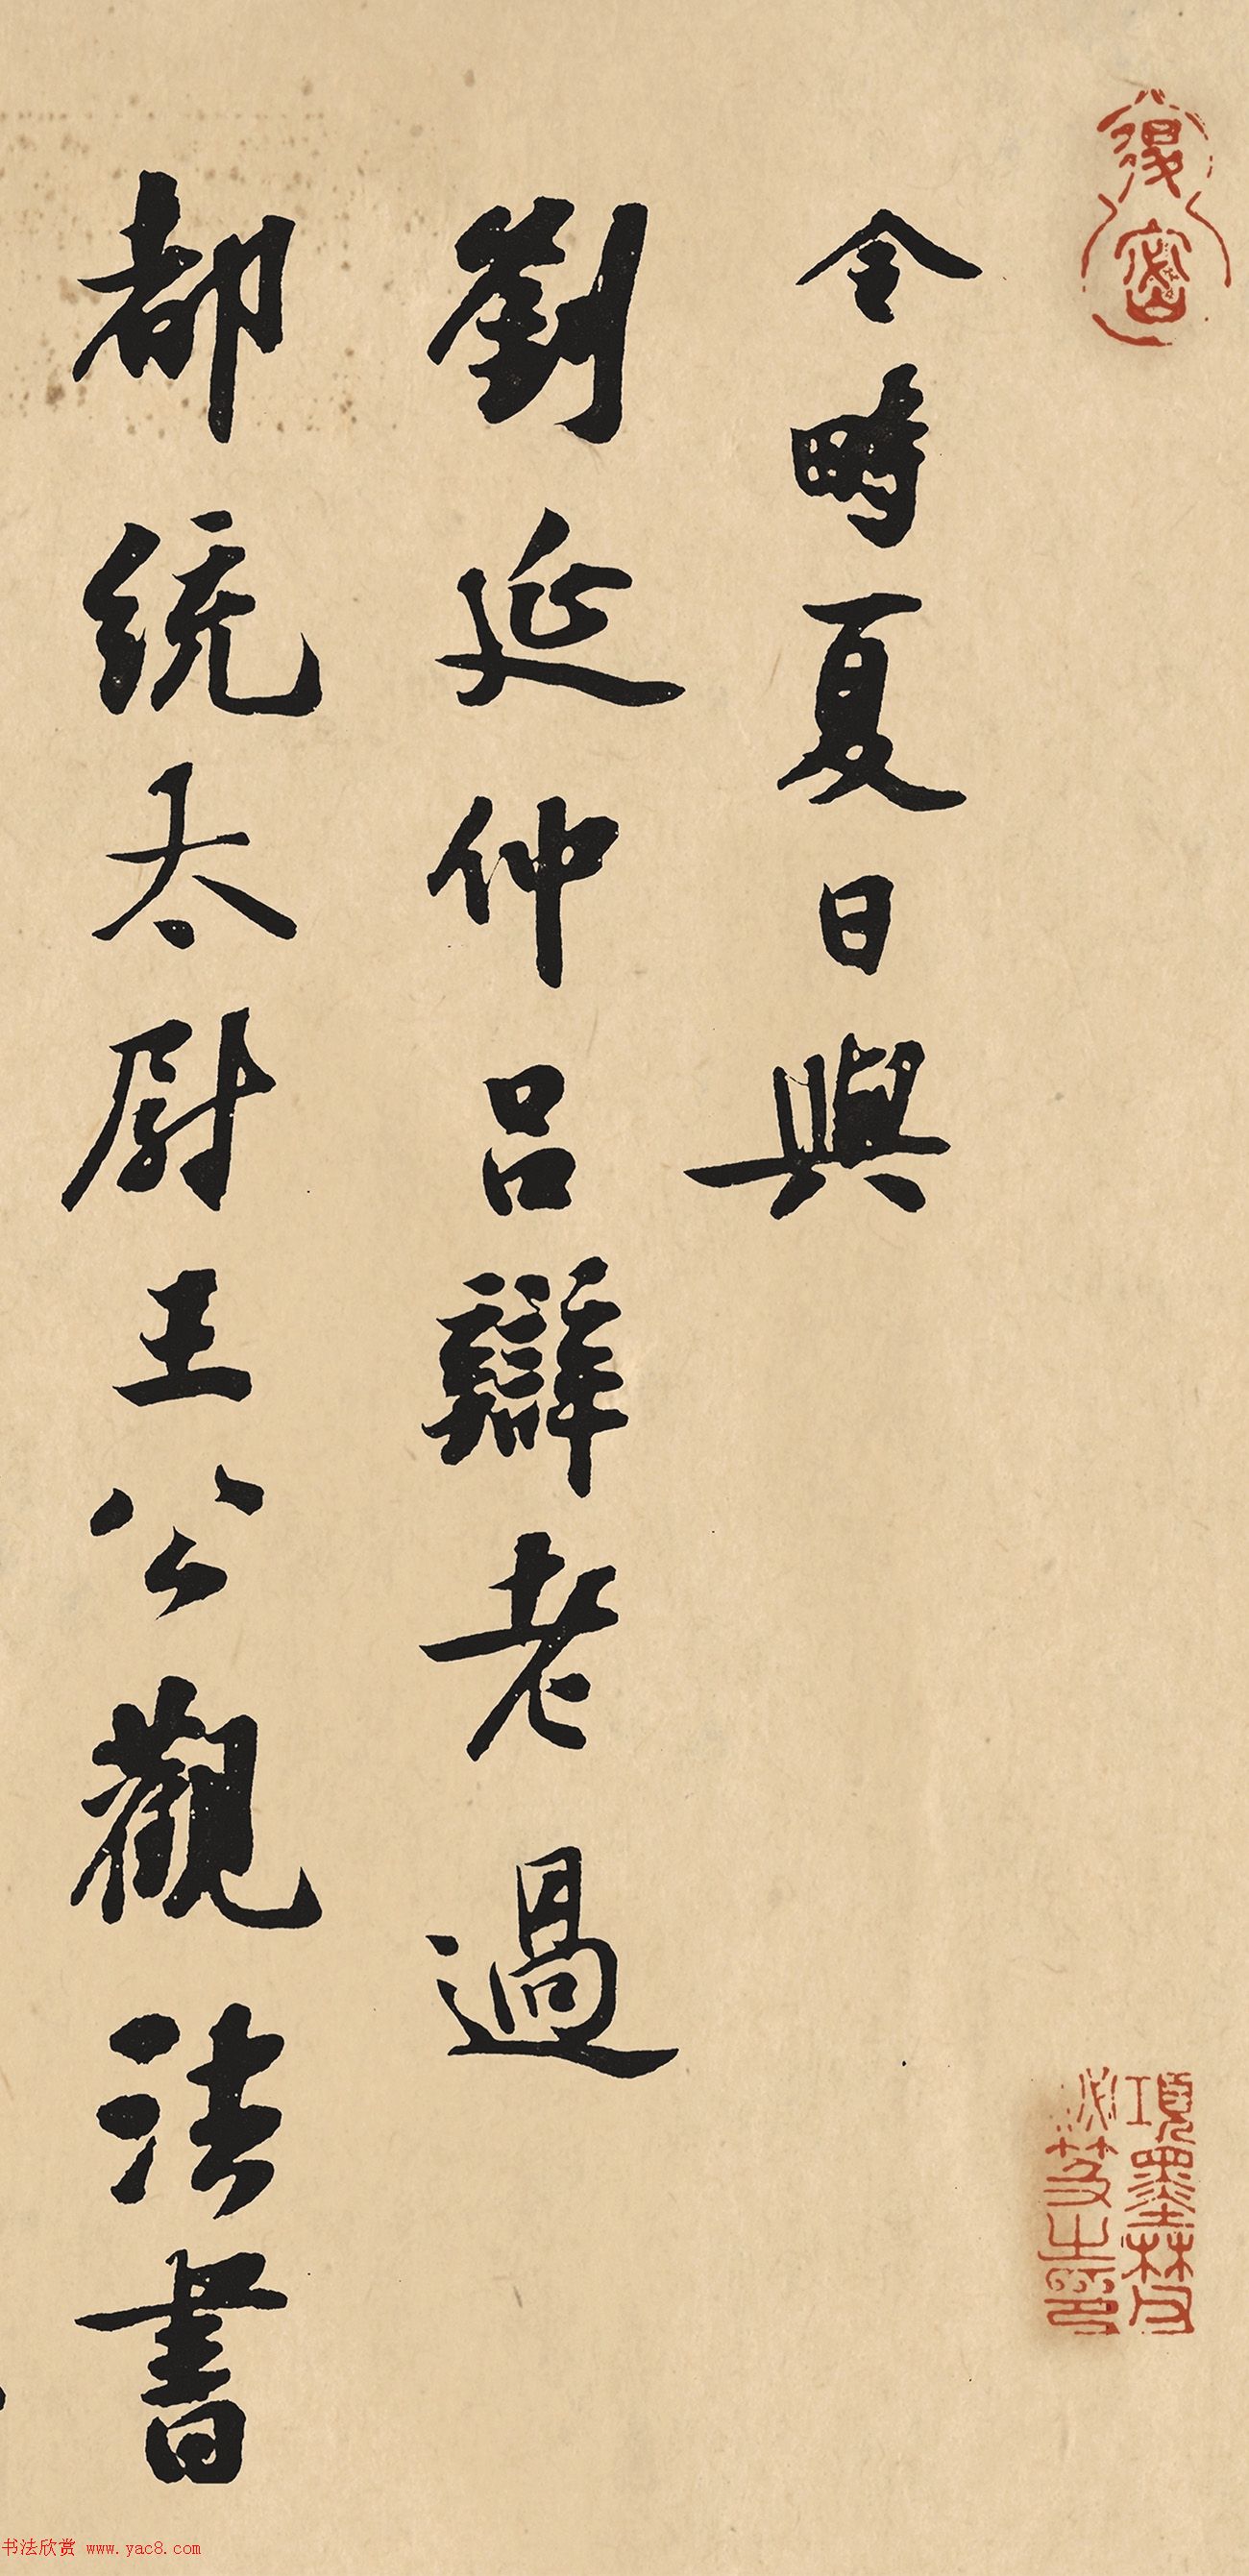 令畤夏日與
劉延仲呂辯老過
都統太尉王公觀法書
項墨林父
祕笈之印
书法欣赏 www.yac8.com